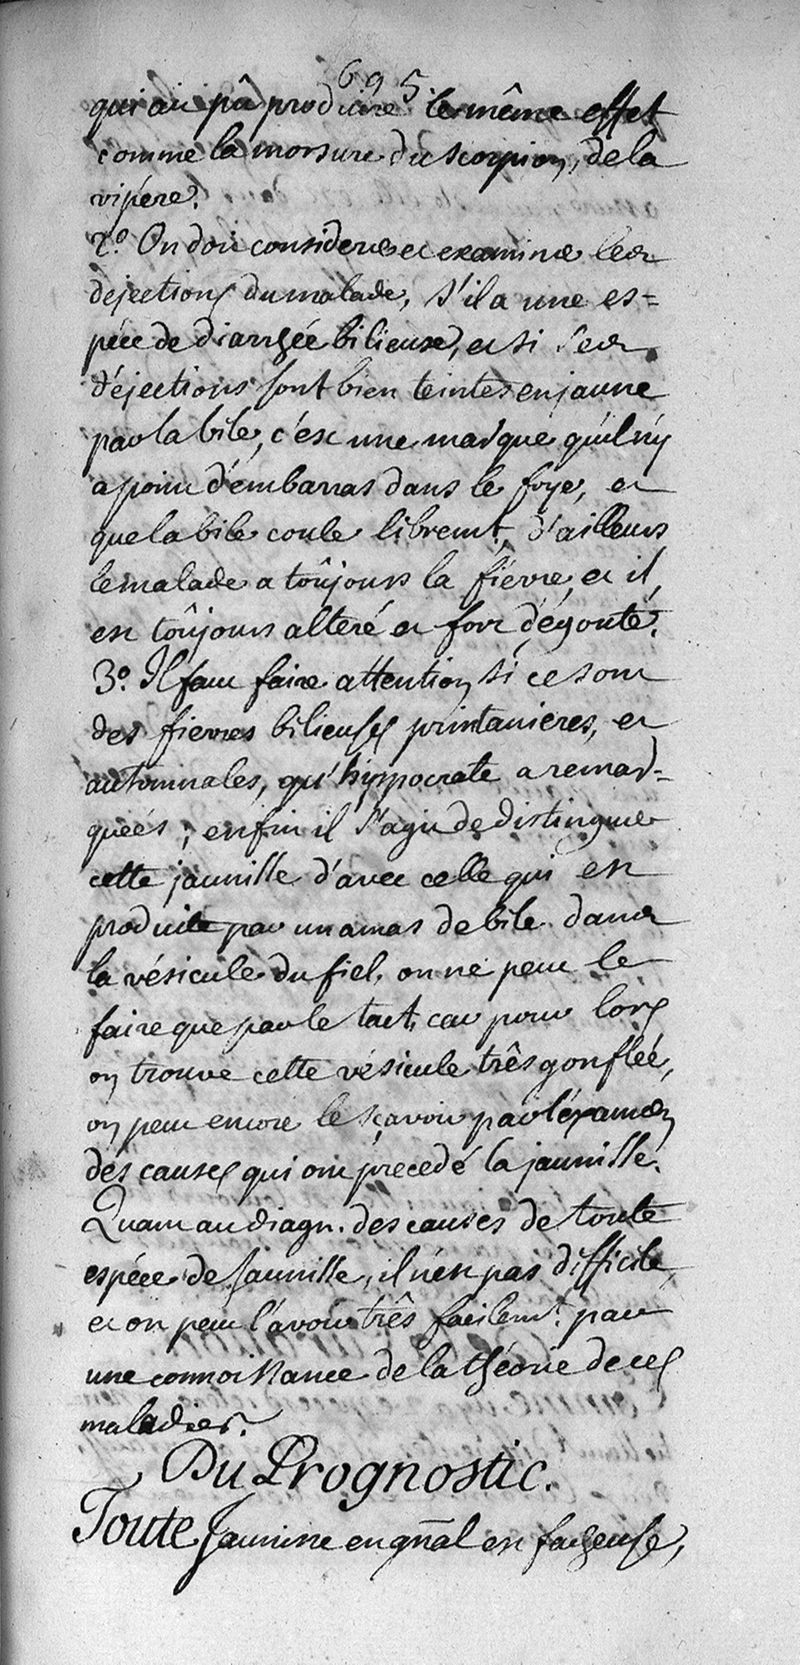 695.
qui ait pû produire le même effet
comme la morsure du scorpion, de la
vipére.
2.° On doit considerer et examiner les
dejections du malade, s'il a une es=
péce de diarrhée bilieuse, et si ses
déjections sont bien teintes en jaune
par la bile, c'est une marque qu'il n'y
a point d'embarras dans le foye, et
que la bile coule libremt, d'ailleurs
le malade a toûjours la fiévre, et il
est toûjours alteré et fort dégouté.
3.° Il faut faire attention si ce sont
des fievres bilieuses printanieres, et
automnales, qu'hyppocrate a remar=
quées; enfin il s'agit de distinguer
cette jaunisse d'avec celle qui est
produite par un amas de bile dans
la vésicule du fiel, on ne peut le
faire que par le tact, car pour lors
on trouve cette vésicule três gonflée,
on peut encore le sçavoir par l'éxamen
des causes qui ont précedé la jaunisse.
Quant au diagn. des causes de toute
espéce de Jaunisse, il n'est pas difficile,
et on peut l'avoir três facilemt. par
une connoissance de la théorie de ces
maladies.
Du Prognostic.
Toute Jaunisse en gñal est facheuse,